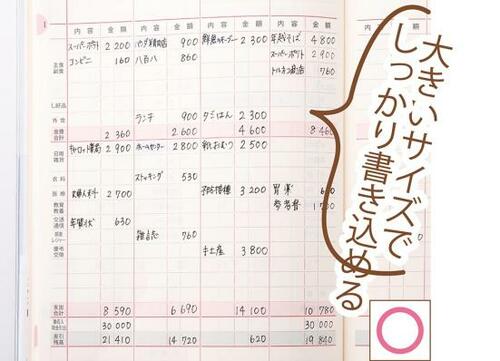 内容 金額 内容 金額 内容 金額 内容 金額
主食
副食
スーパーポテト 2 200
900
2 300
年越そば 4 800
コンビニ 160 八百八 860
スーパーポテト 2 900
760
し好品
外食
ランチ 900 夕ごはん 2 300
食費
合計
2 360 2 600 4 600 8 460
日用
雑貨
2 900 ホームセンター 2 800 紙おむつ 2 500
衣料
ストッキング 530
医療
婦人科 2 700 予防接種 3 200 胃薬
教育
教養
参考書
交通
通信
年賀状 630
娯楽
レジャー
雑誌 760
交際
手土産 3 800
支出
合計
8 590 6 690 14 100 10 780
30 000 30 000
差引
残高
21 410 14 720 620 19 840
大きいサイズで
しっかり書き込める